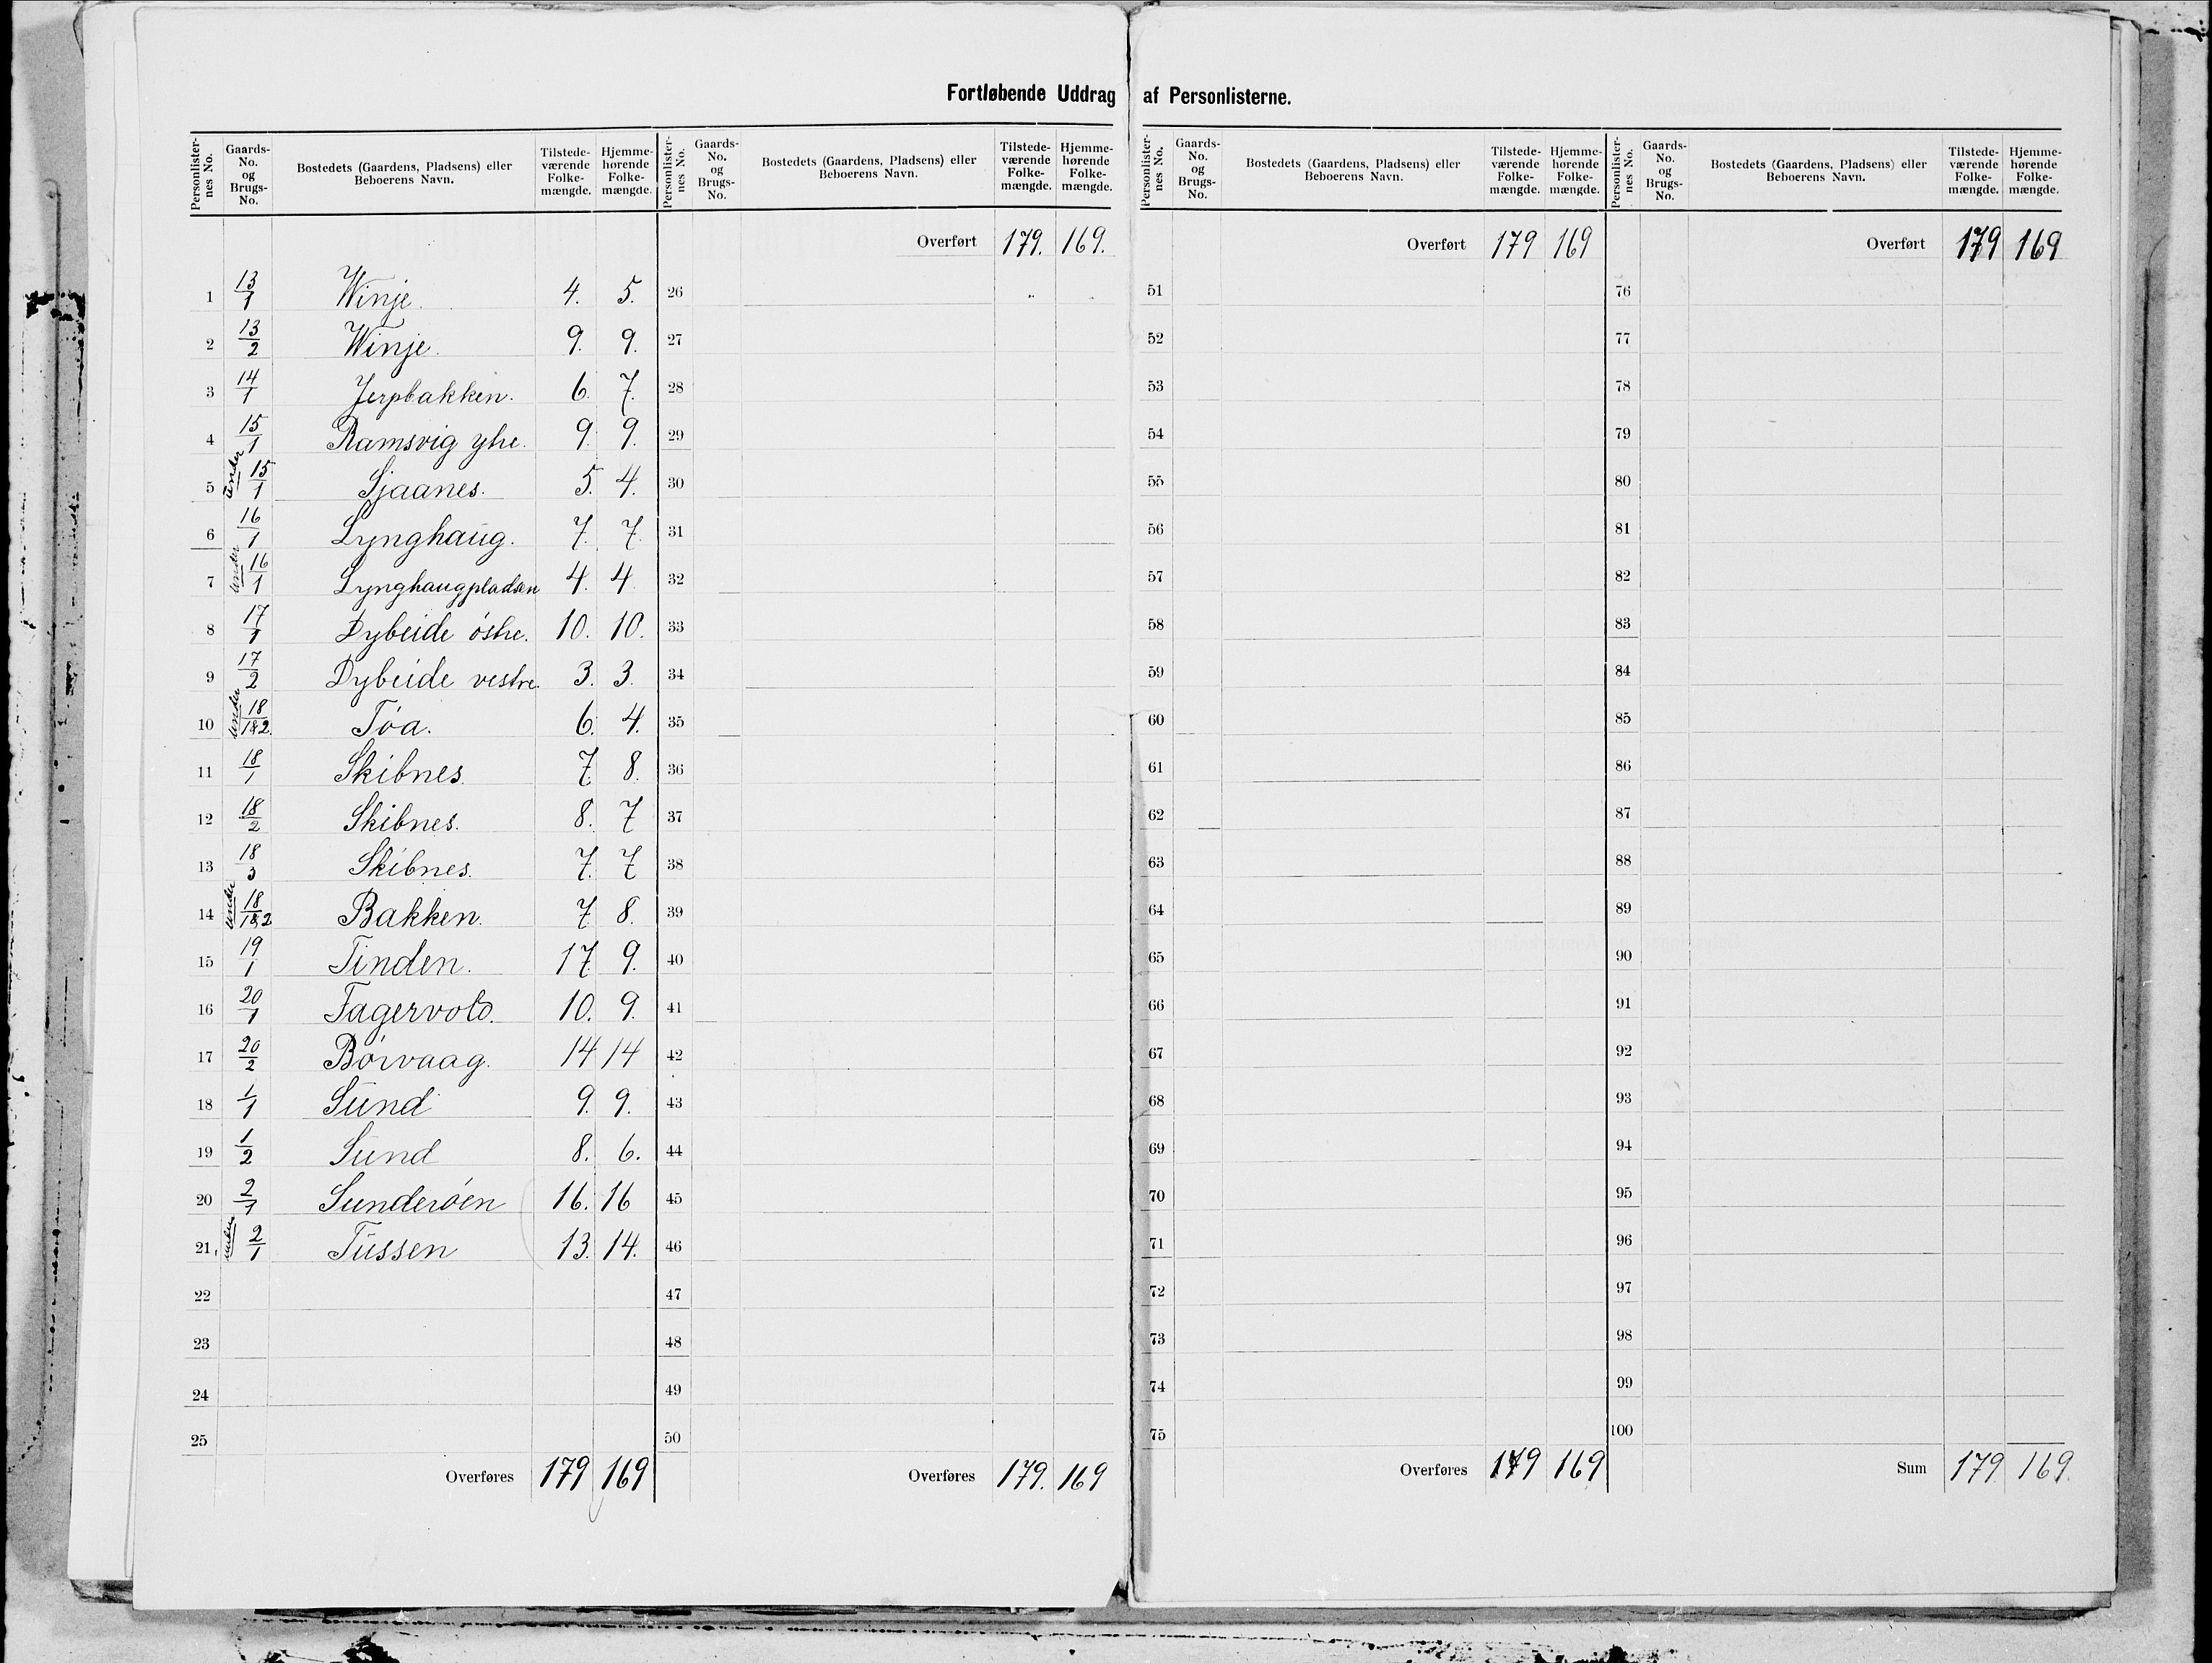 Fortløbende Uddrag af Personlisterne.
Personlister-nes No. Gaards-No. og Brugs-No. Bostedets (Gaardens, Pladsens) eller Beboerens Navn. Tilstede-værende Folke-mængde. Hjemme-hørende Folke-mængde. Personlister-nes No. Gaards-No. og Brugs-No. Bostedets (Gaardens, Pladsens) eller Beboerens Navn. Tilstede-værende Folke-mængde. Hjemme-hørende Folke-mængde. Personlister-nes No. Gaards-No. og Brugs-No. Bostedets (Gaardens, Pladsens) eller Beboerens Navn. Tilstede-værende Folke-mængde. Hjemme-hørende Folke-mængde. Personlister-nes No. Gaards-No. og Brugs-No. Bostedets (Gaardens, Pladsens) eller Beboerens Navn. Tilstede-værende Folke-mængde. Hjemme-hørende Folke-mængde.
Overført 179. 169. Overført 179 169 Overført 179 169
1 13/1 Winje. 4. 5. 26 51 76
2 13/2 Winje. 9. 9. 27 52 77
3 14/1 Jerpbakken. 6. 7. 28 53 78
4 15/1 Ramsvig ytre. 9. 9. 29 54 79
5 under 15/1 Sjaanes. 5. 4. 30 55 80
6 16/1 Lynghaug. 7. 7. 31 56 81
7 under 16/1 Lynghaugpladsen 4. 4. 32 57 82
8 17/1 Dybeide östre. 10. 10. 33 58 83
9 17/2 Dybeide vestre. 3. 3. 34 59 84
10 under 18/1&2. Töa. 6. 4. 35 60 85
11 18/1 Skibnes. 7 8. 36 61 86
12 18/2 Skibnes. 8. 7 37 62 87
13 18/3 Skibnes. 7. 7 38 63 88
14 under 18/1&2 Bakken. 7 8. 39 64 89
15 19/1 Tinden. 17. 9. 40 65 90
16 20/1 Fagervold. 10. 9. 41 66 91
17 20/2 Börvaag. 14 14 42 67 92
18 1/1 Sund 9. 9. 43 68 93
19 1/2 Sund 8. 6. 44 69 94
20 2/1 Sunderöen 16. 16 45 70 95
21, under 2/1 Tussen 13. 14. 46 71 96
22 47 72 97
23 48 73 98
24 49 74 99
25 50 75 100
Overføres 179 169 Overføres 179. 169 Overføres 179 169 Sum 179 169.